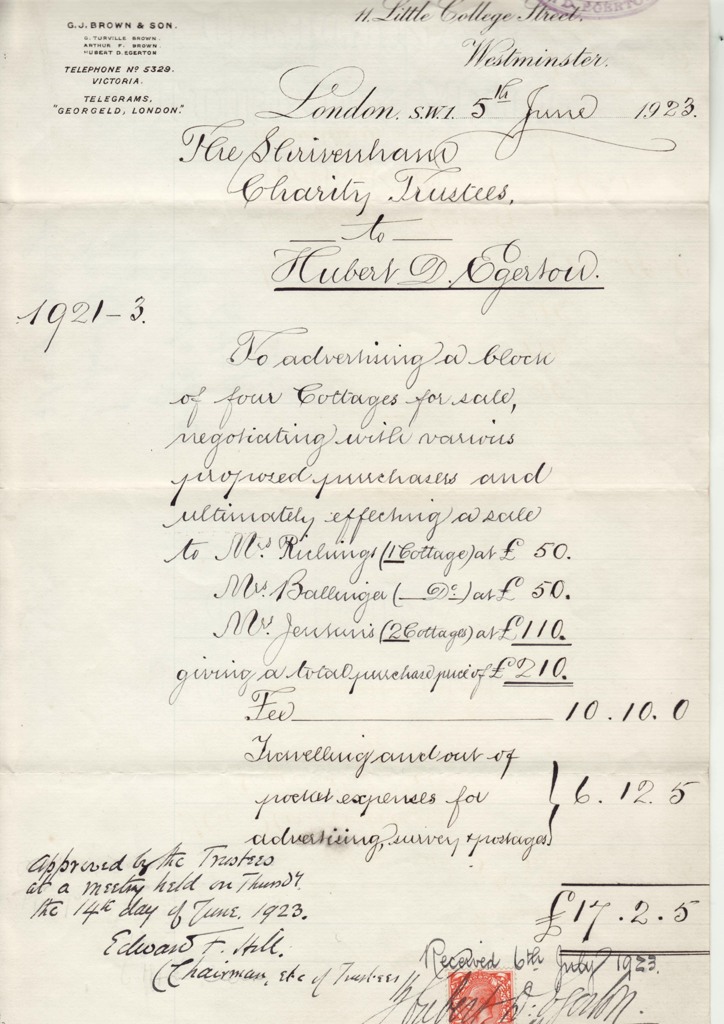 G. J. BROWN & SON.
G. TURVILLE BROWN.
ARTHUR F. BROWN
HUBERT D. EGERTON
TELEPHONE Nº 5329.
VICTORIA.
TELEGRAMS,
"GEORGELD, LONDON."
11, Little College Street,
Westminster.
London. S.W.1. 5th June 1923.
The Shrivenham
Charity Trustees,
— to —
Hubert D. Egerton.
1921-3.
To advertising a block
of four Cottages for sale,
negotiating with various
proposed purchasers and
ultimately effecting a sale
to Mr. Richings (1 Cottage) at £ 50.
Mrs Ballinger (— Do —) at £ 50.
Mr. Jenkins (2 Cottages) at £110.
giving a total purchase price of £210.
Fee 10.10.0
Travelling and out of
pocket expenses for
advertising, survey & postages } 6.12.5
£17.2.5
approved by the Trustees
at a meeting held on Thursdy.
the 14th day of June, 1923.
Edward F. Hill.
Chairman, etc of Trustees
Received 6th July 1923
Hubert D. Egerton.